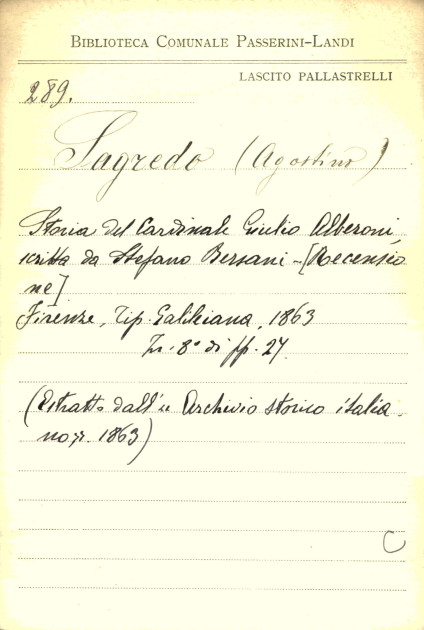 BIBLIOTECA COMUNALE PASSERINI-LANDI
LASCITO PALLASTRELLI
289.
Sagredo (Agostino)
Storia del Cardinale Giulio Alberoni,
scritta da Stefano Bersani - [Recensio
ne]
Firenze, Tip. Galileiana, 1863
In-8° di pp. 27.
(Estratto dall'« Archivio storico italia-
no », 1863)
C